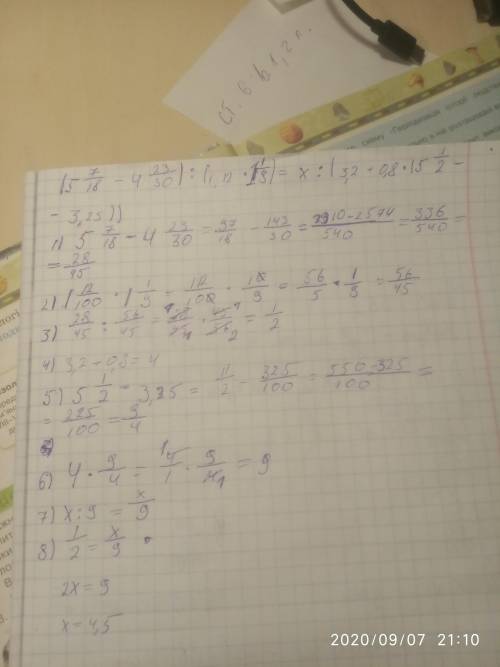 ст. 6 в 1, 2 п.
(5 7/18 - 4 23/30) : (1,12 · 1 1/9) = x : (3,2 + 0,8 · (5 1/2 -
- 3,25))
1) 5 7/18 - 4 23/30 = 97/18 - 143/30 = 2910-2574/540 = 336/540 =
= 28/45
2) 1 12/100 · 1 1/9 = 112/100 · 10/9 = 56/5 · 1/9 = 56/45
3) 28/45 : 56/45 = 28/45 · 45/56 = 1/2
4) 3,2 + 0,8 = 4
5) 5 1/2 - 3,25 = 11/2 - 325/100 = 550-325/100 =
= 225/100 = 9/4
6) 4 · 9/4 = 4/1 · 9/4 = 9
7) x : 9 = x/9
8) 1/2 = x/9
2x = 9
x = 4,5
2020/09/07 21:10